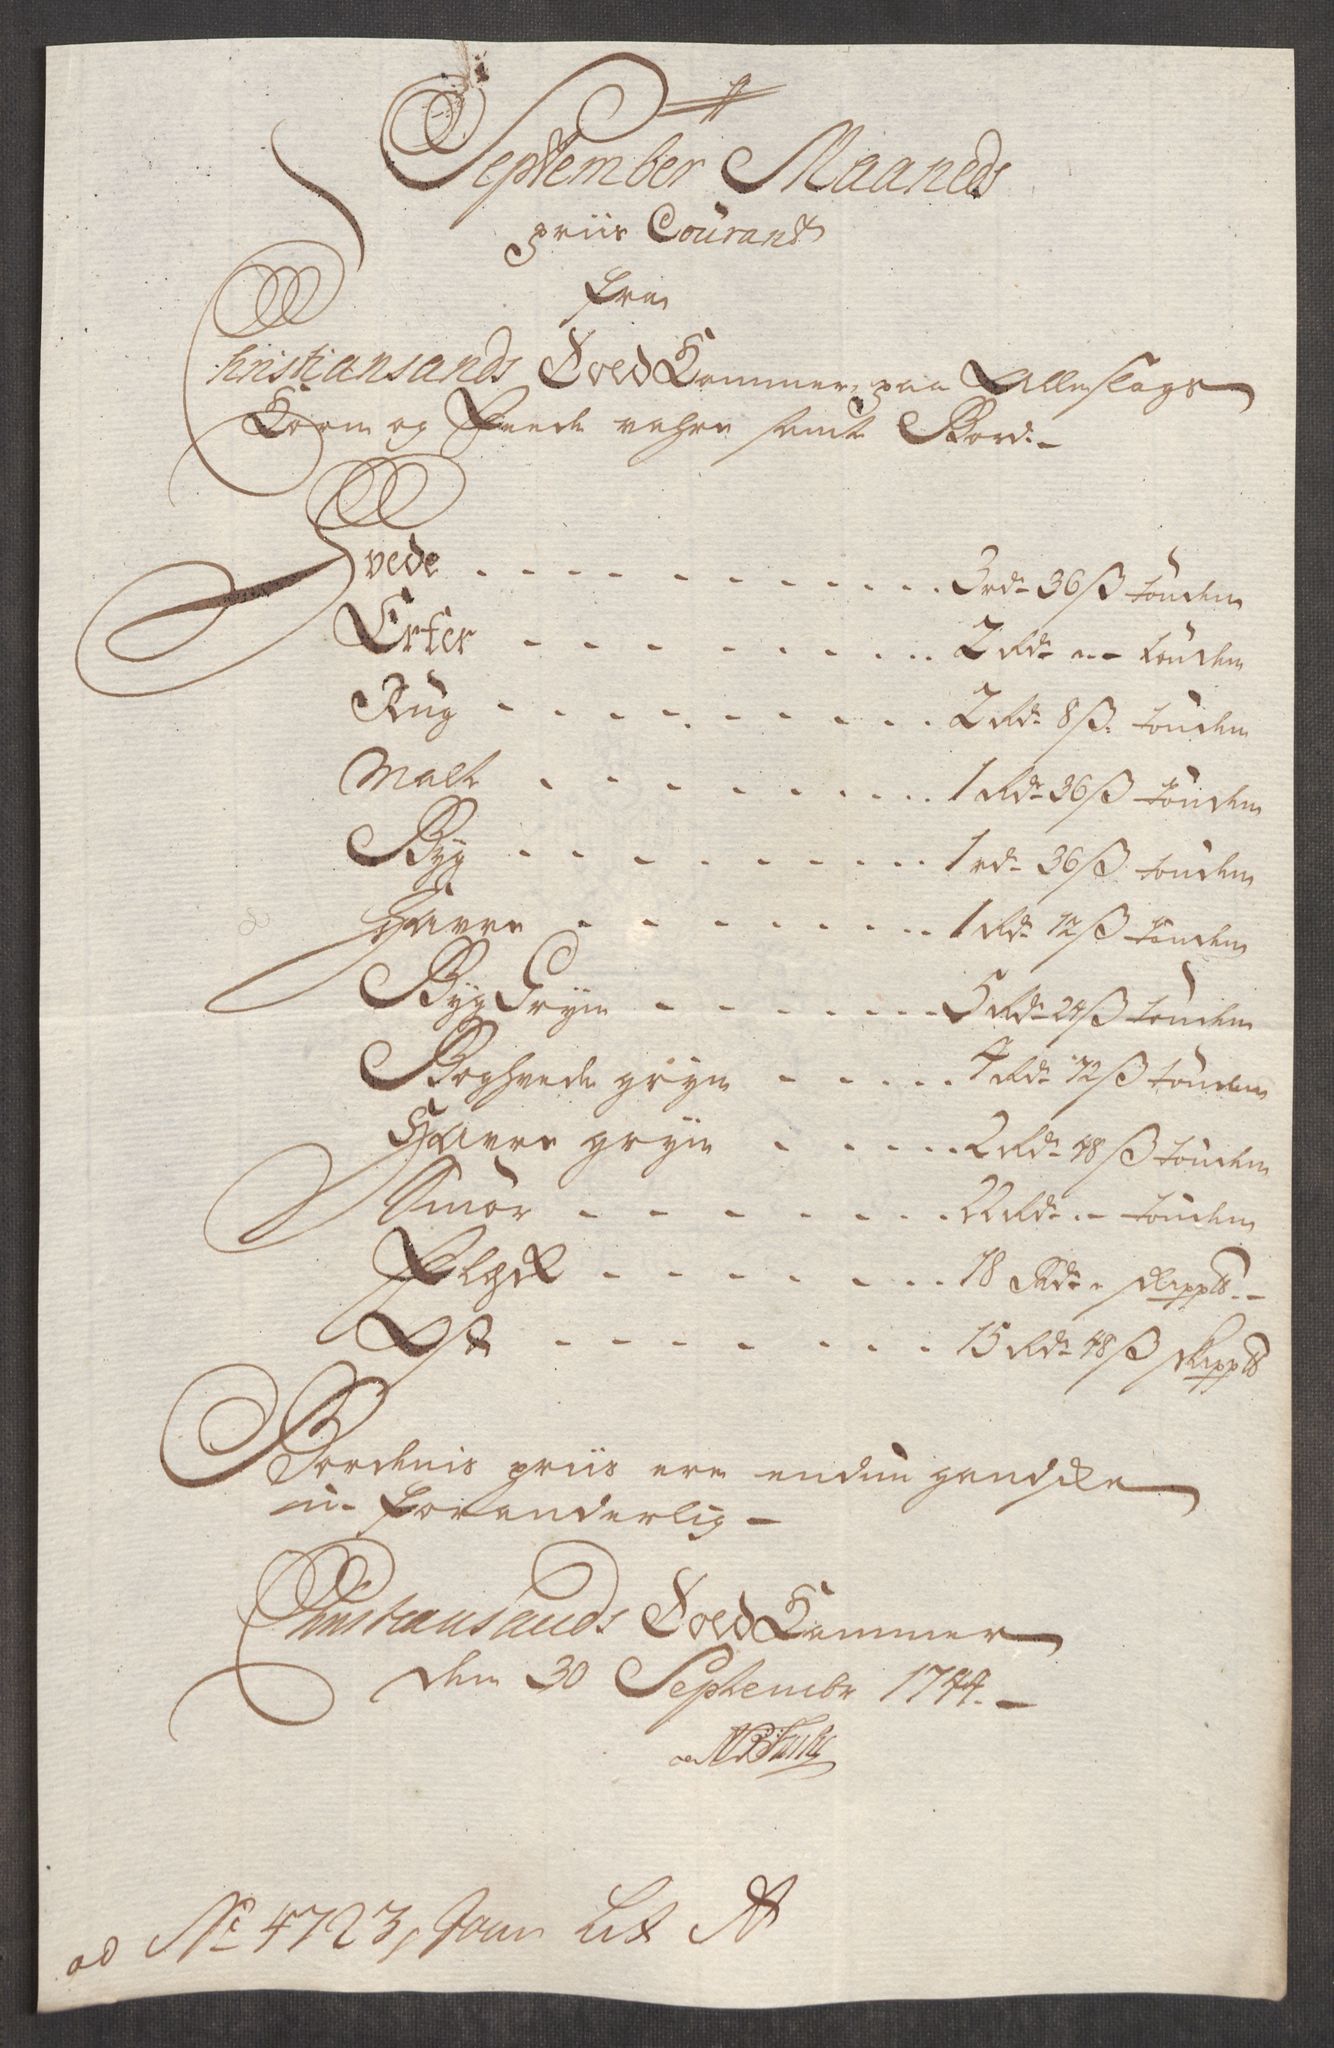 September Maaneds
priis Courant
fra
Christiansands Told Kammer, paa Alle slags
Korn og Feede vahre samt Bord.
Hvede 3 rdr 36 ß tønden
Erter 2 Rdr " - tønden
Rug 2 Rdr 8 ß. tønden
Malt 1 Rdr 36 ß tønden
Byg 1 rdr 36 ß tønden
Havre 1 Rdr 12 ß tønden
Byg Gryn 5 Rdr 24 ß tønden
Boghvede gryn 4 Rdr 72 ß tønden
Havre gryn 2 Rdr 48 ß tønden
Smør 22 Rdr " - tønden
Flesk 18 Rdr " skippd
Ost 15 Rdr 48 ß skippd
Bordenis priis ere endnu gandske
u-foranderlig -
Christiansands Told Kammer
den 30 Septembr 1744. -
ad No 4723, Lit A